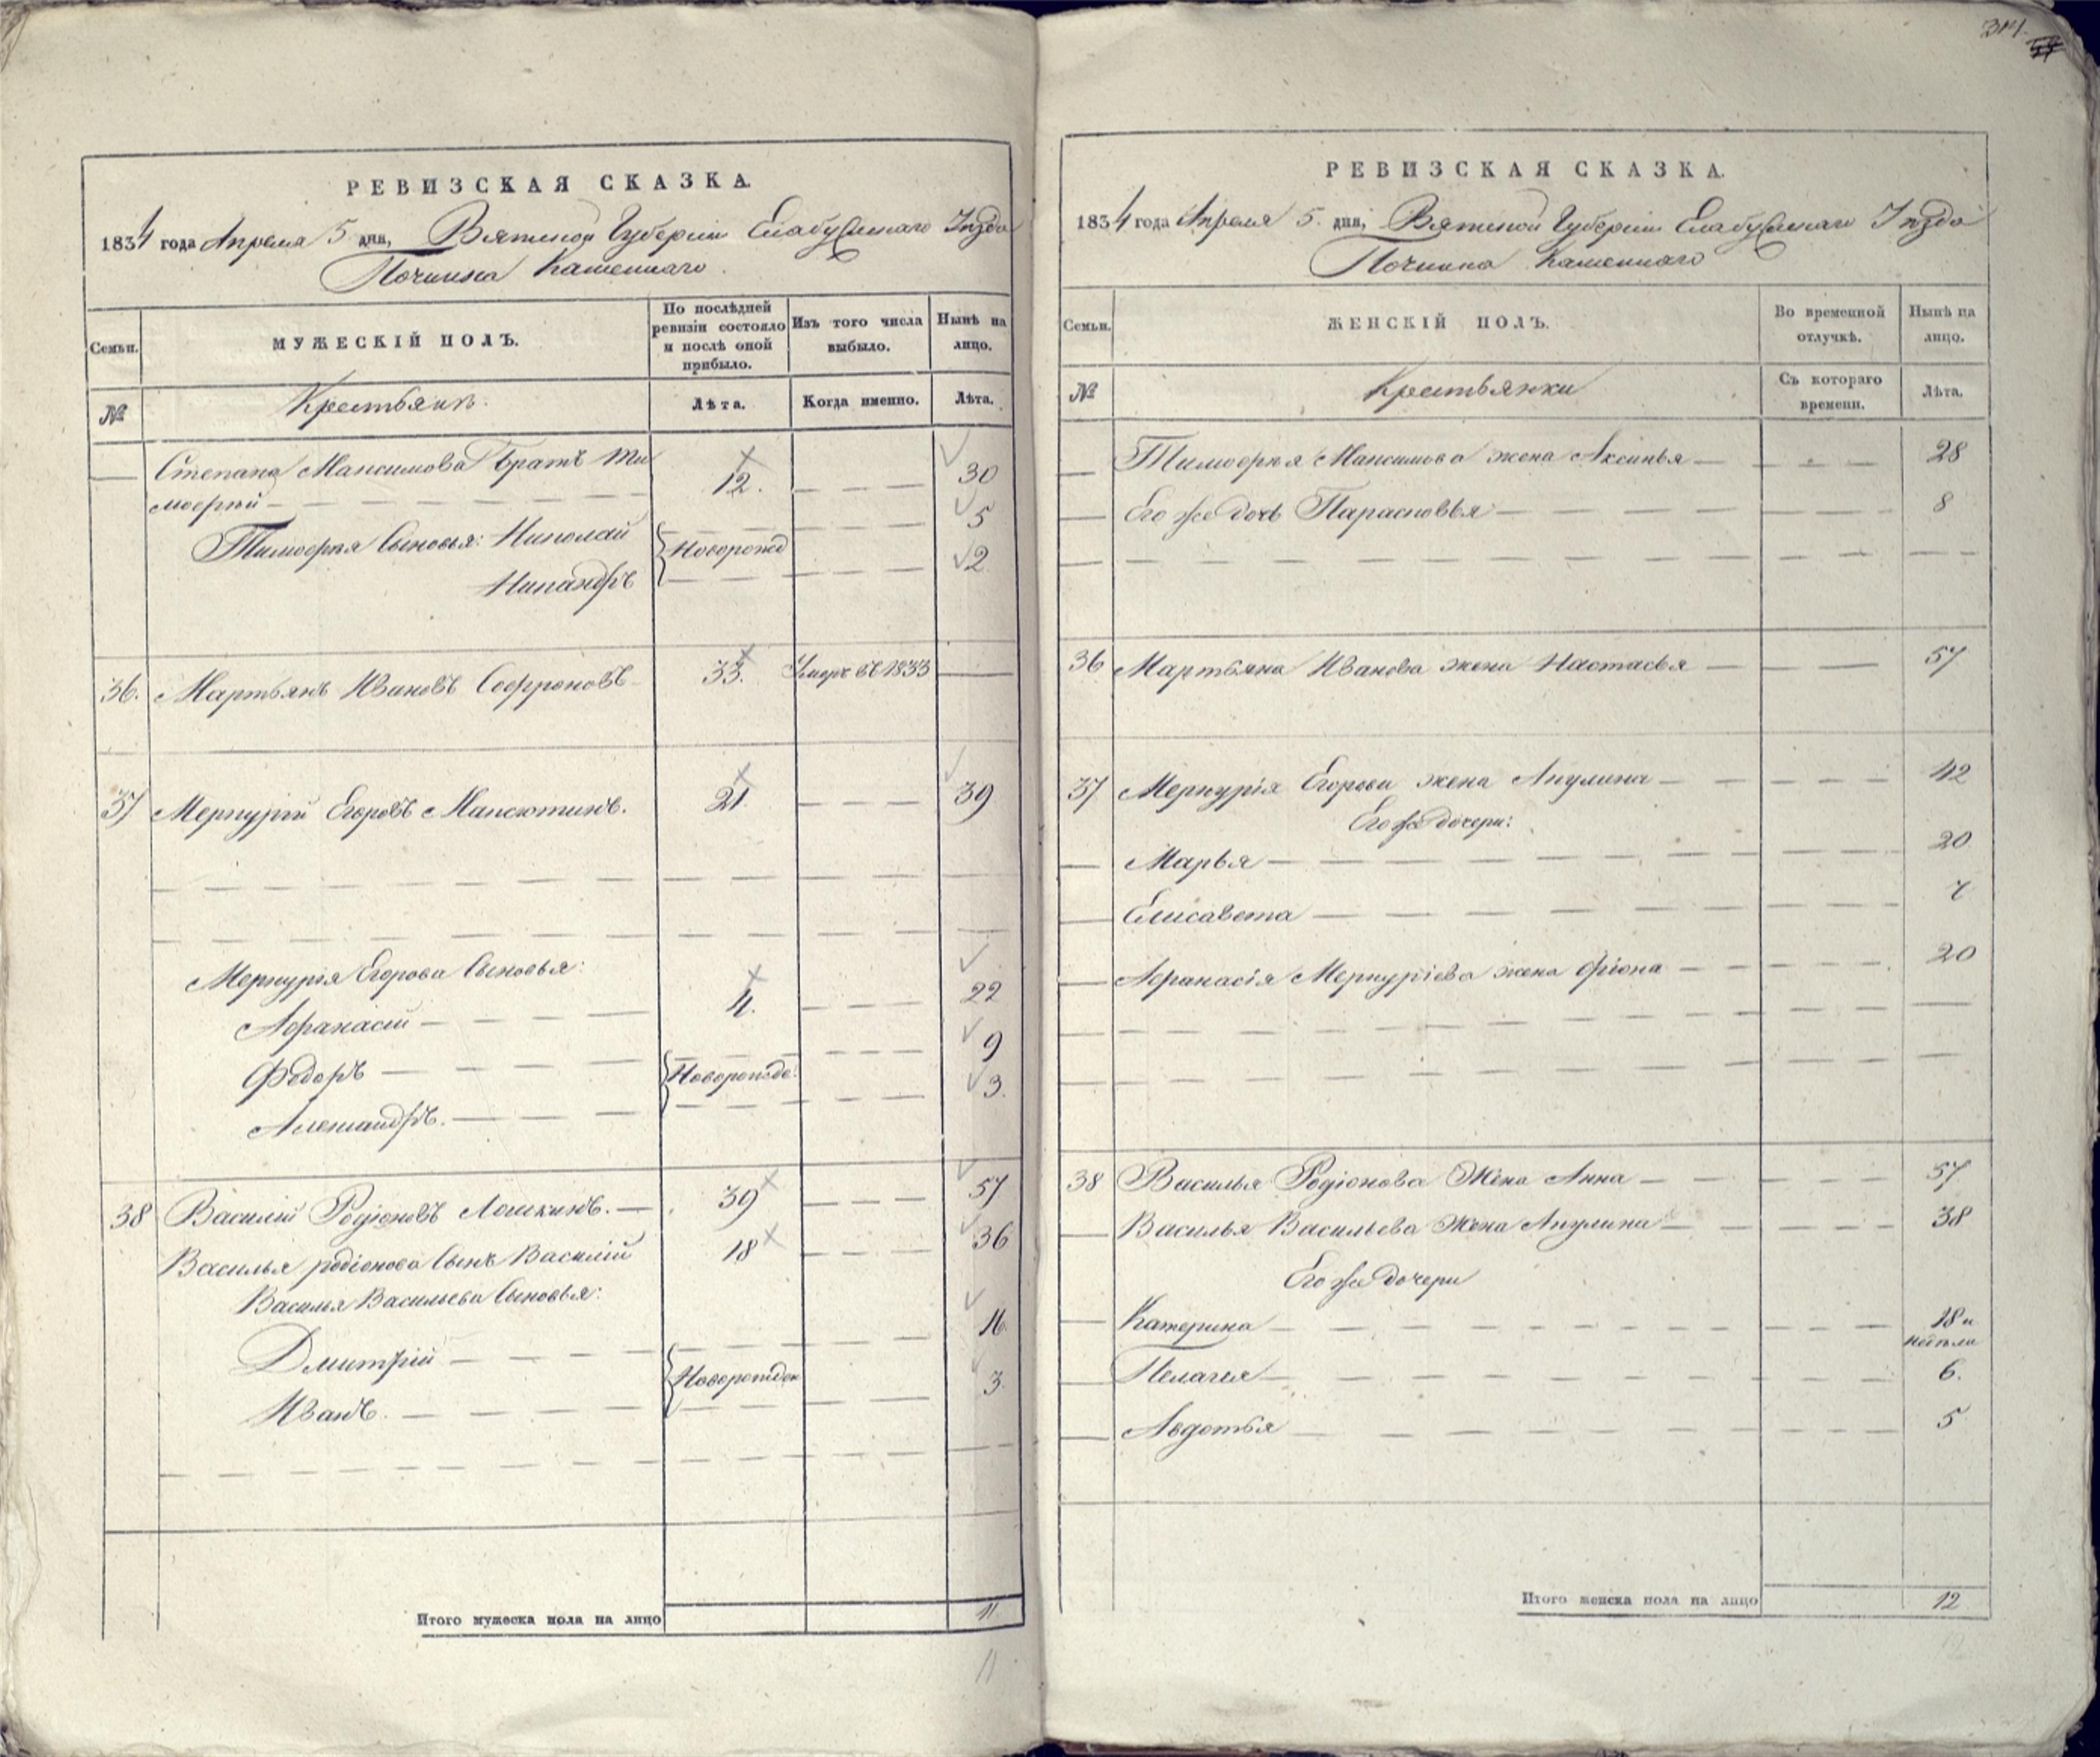 РЕВИЗСКАЯ СКАЗКА.
1834 года Апреля 5 дня, Вятской Губернии Елабужскаго Уѣзда
Починка Каменнаго
Семьи.
МУЖЕСКІЙ ПОЛЪ.
По послѣдней ревизіи состояло и послѣ оной прибыло.
Изъ того числа выбыло.
Нынѣ на лицо.
№
Крестьянъ.
Лѣта.
Когда именно.
Лѣта.
Степана Максимова братъ Ти 12. 30
мофей
Тимофея Сыновья: Николай Новорожд 5
Никандръ 2
36. Мартьянъ Ивановъ Софроновъ 33. Умеръ въ 1833
37 Меркурій Егоровъ Максютинъ. 21. 39
Меркурія Егорова Сыновья:
Афанасій 4. 22
Федоръ Новорожде: 9
Александръ. 3.
38 Василій Родіоновъ Лошкинъ. 39 57
Василья родіонова Сынъ Василій 18 36
Василья Васильева Сыновья:
Дмитрій 16
Иванъ. Новорожден 3.
Итого мужеска пола на лицо 11
11
314.
РЕВИЗСКАЯ СКАЗКА.
1834 года Апреля 5. дня, Вятской Губерніи Елабужскаго Уѣзда
Починка Каменнаго
Семьи.
ЖЕНСКІЙ ПОЛЪ.
Во временной отлучкѣ.
Нынѣ на лицо.
№
Крестьянки
Съ котораго времени.
Лѣта.
Тимофея Максимова жена Аксинья 28
Его же дочь Парасковья 8
36 Мартьяна Иванова жена Настасья 57
37 Меркурія Егорова жена Акулина 42
Его же дочери:
Марья 20
Елисавета 7
Афанасія Меркуріева жена Фіона 20
38 Василья Родіонова Жена Анна 57
Василья Васильева Жена Акулина 38
Его же дочери
Катерина 18 и
недѣли
Пелагея 6.
Авдотья 5
Итого женска пола на лицо 12
12